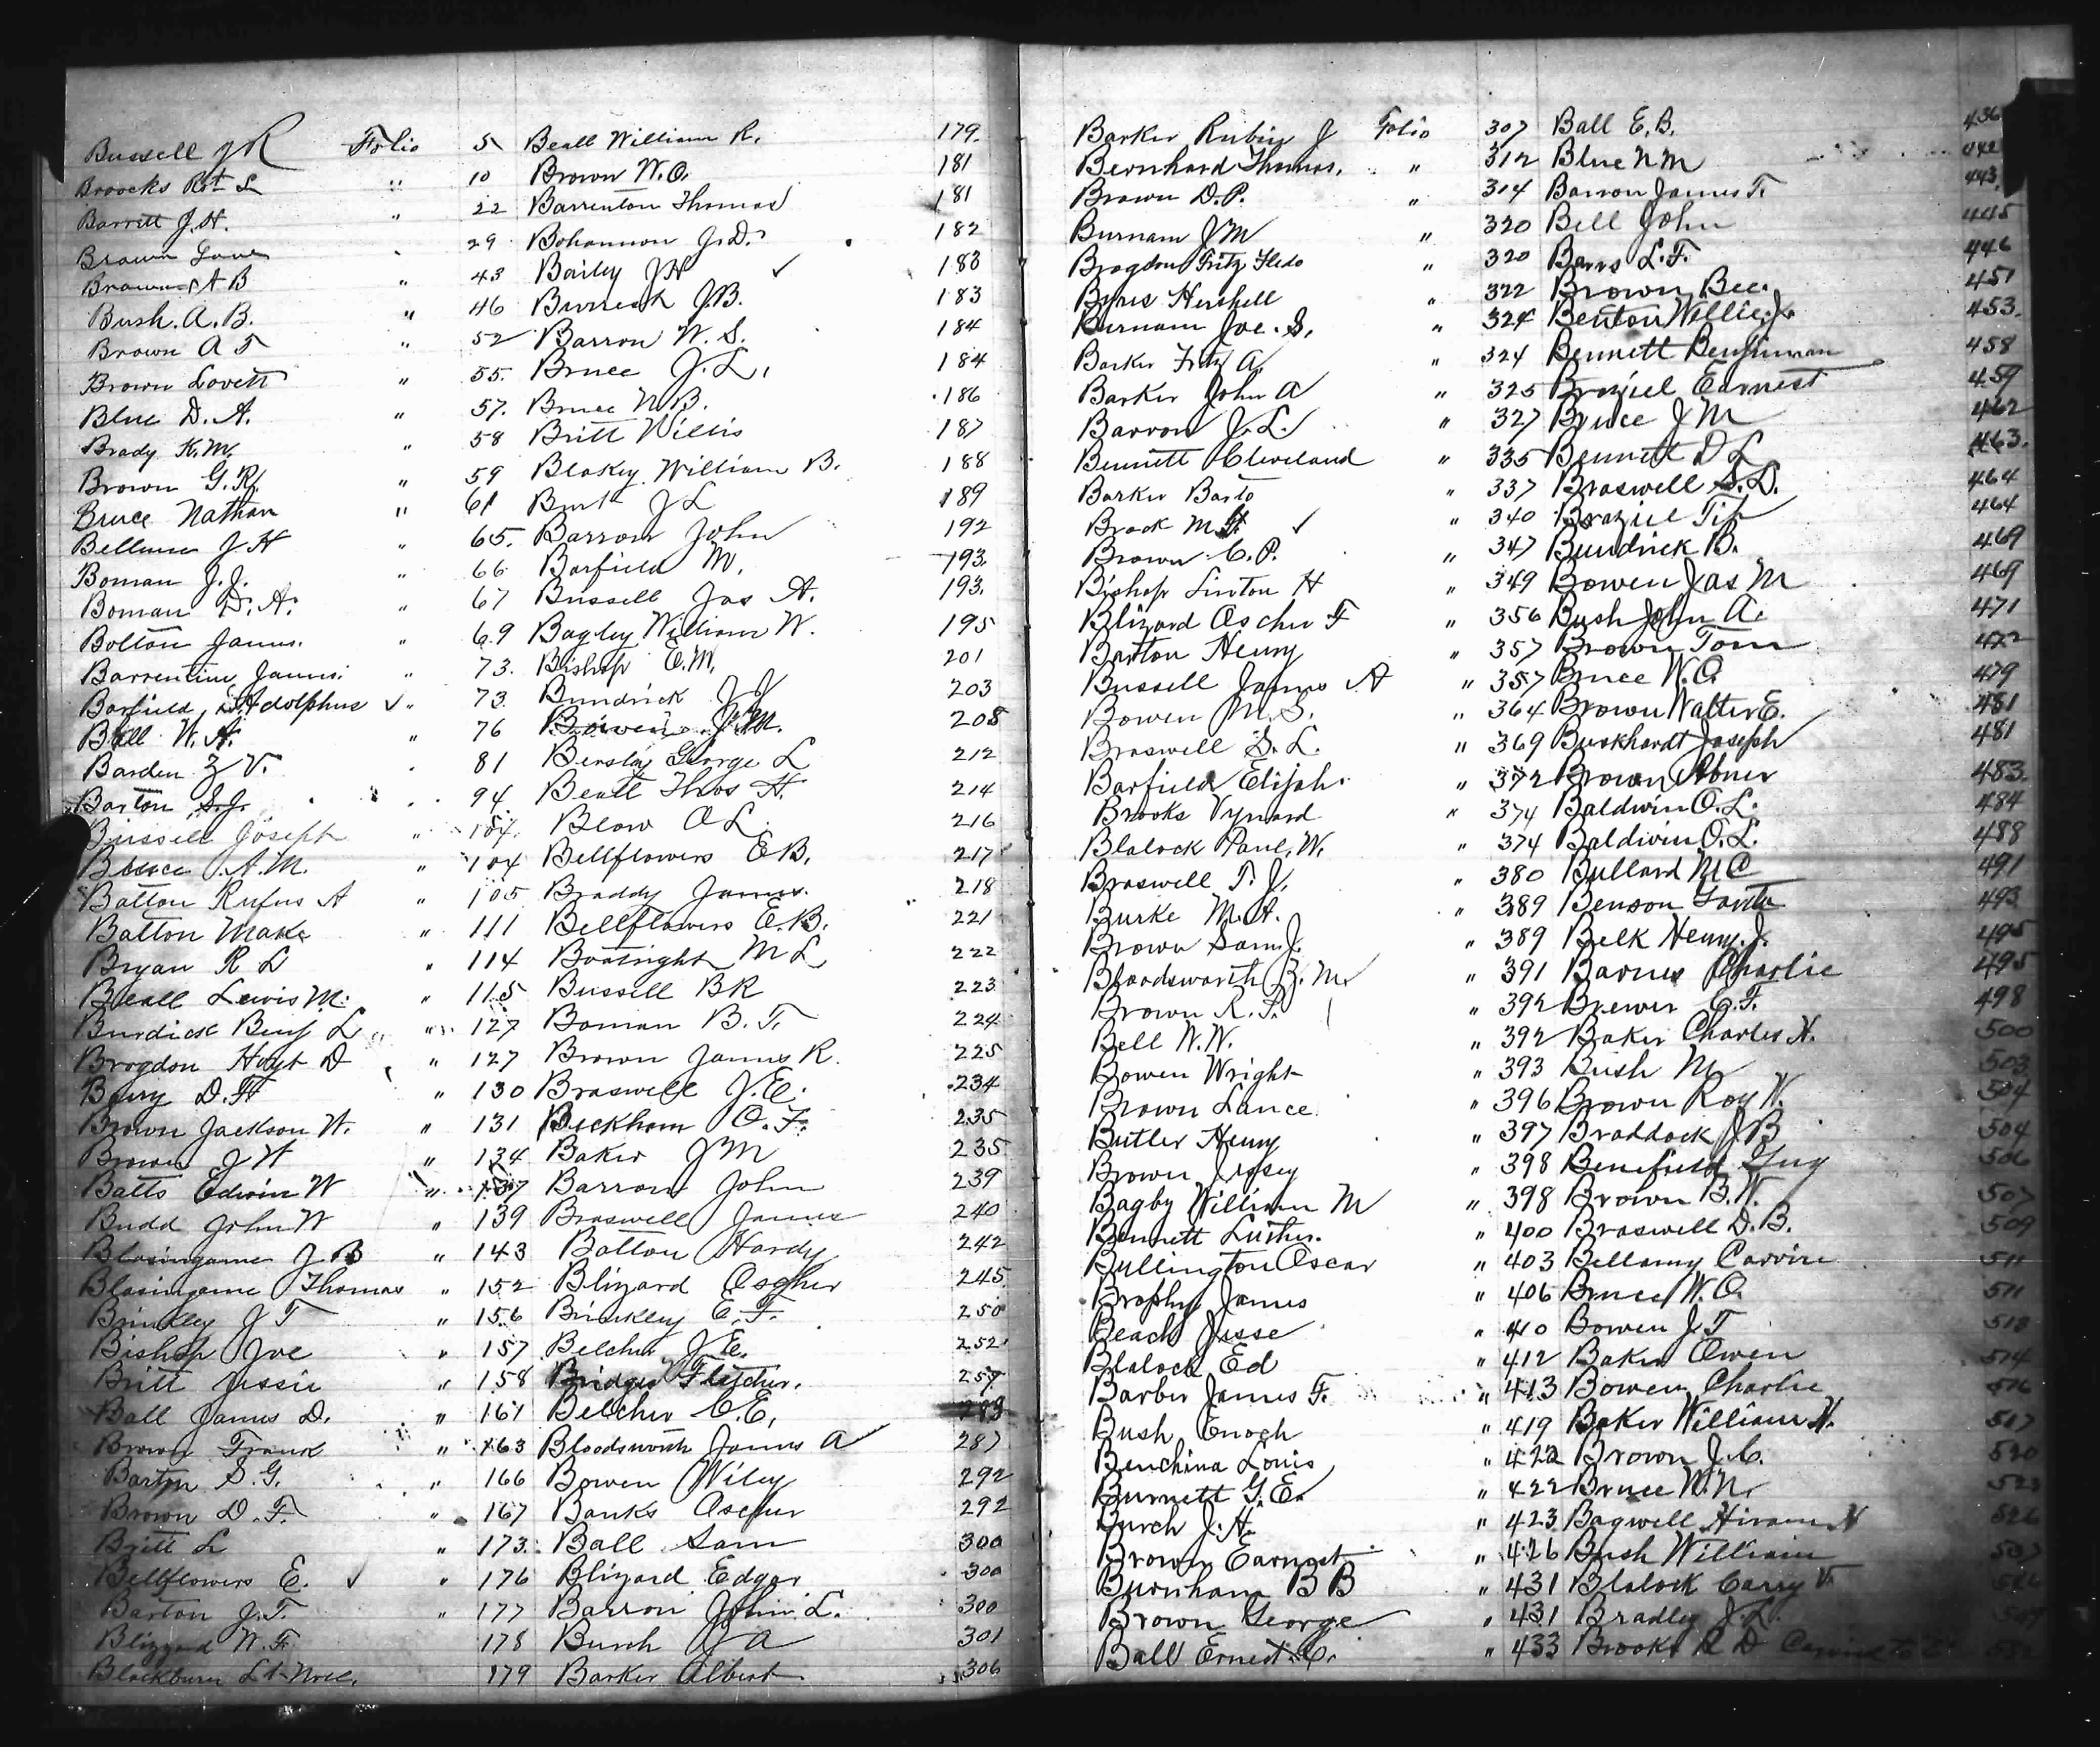 Bussell J R Folio 5
Broocks Rbt L " 10
Barrett J. H. " 22
Brown Love " 29
Brown A B " 43
Bush. A. B. " 46
Brown A T " 52
Brown Lovett " 55.
Blue D. A. " 57.
Brady K. M. " 58
Brown G. R. " 59
Bruce Nathan " 61
Bellune J H " 65.
Boman J. J. " 66
Boman D. A. " 67
Bolton James. " 69
Barrentine James. " 73.
Barfield, Adolphus ✓ " 73.
Ball W. A. " 76
Barden Z V. " 81
Barton S. J. " 94
Bussell Joseph " 104.
Bruce A. M. " 104
Batton Rufus A " 105
Batton Make " 111
Bryan R L " 114
Beall Lewis M. " 115
Burdick Benj L " 127
Brogdon Hoyt D " 127
Berry D. H " 130
Brown Jackson W. " 131
Brown J W " 134
Batts Edwin W " 137
Budd John W " 139
Blasingame J B " 143
Blasingame Thomas " 152
Brinkley J T " 156
Bishop Joe " 157
Britt Jessie " 158
Ball James D. " 161
Brown Frank " 163
Barton S. G. " 166
Brown D. F. " 167
Britt L " 173.
Bellflowers E. ✓ " 176
Barton J. T. " 177
Blizzard W. F. 178
Blackburn 179
Beall William R. 179.
Brown W. O. 181
Barrenton Thomas 181
Bohannon J. D. 182
Bailey J H ✓ 183
J. B. 183
Barron W. S. 184
Bruce J. L. 184
Bruce N. B. 186
Britt Willis 187
Blakey William B. 188
Brut J L 189
Barron John 192
Barfield M. 193.
Bussell Jas A. 193.
Bagley William W. 195
Bishop E. M. 201
Bundrick J J 203
Bowen J. M. 208
George L 212
Beall Thos H. 214
Blow O L. 216
Bellflowers E B. 217
Braddy James. 218
Bellflowers E. B. 221
Boatright M L 222
Bussell B R 223
Boman B. T. 224
Brown James R. 225
Braswell J. E. 234
Beckham O. F. 235
Baker J M 235
Barron John 239
Braswell James 240
Batton Hardy 242
Blizard Oscher 245
Brinkley E. F. 250
Belcher J. E. 252
Bridges Fletcher. 257
Belcher C. E.
Bloodsworth James A 287
Bowen Wiley 292
Banks Oscher 292
Ball Sam 300
Blizard Edgar 300
Barron John L. 300
Burch J A 301
Barker Albert 306
Barker Rubin J Folio 307
Bernhard Thomas. " 312
Brown D. P. " 314
Burnam J M " 320
Brogdon Fritz Hedo " 320
Byrns Hershell " 322
Burnam Joe. S. " 324
Barker Fritz A. " 324
Barker John A " 325
Barron J. L. " 327
Bennett Cleveland " 335
Barker Barto " 337
Brock M ✓ " 340
Brown C. P. " 347
Bishop Linton H " 349
Blizard Oscher F " 356
Barton Henry " 357
Bussell James A " 357
Bowen M. S. " 364
Braswell S. L. " 369
Barfield Elijah. " 372
Brooks Vynard " 374
Blalock Paul W. " 374
Braswell T. J. " 380
Burke M. A. " 389
Brown Sam J. " 389
Bloodsworth Z. M. " 391
Brown R. F. " 392
Bell W. W. " 392
Bowen Wright " 393
Brown Lance " 396
Butler Henry " 397
Brown Jessey " 398
Bagby William M " 398
Bennett Luther. " 400
Bullington Oscar " 403
Brophy James " 406
Beach Jesse " 410
Blalock Ed " 412
Barber James F. " 413
Bush Enoch " 419
Benchina Louis " 422
Burnett G. E. " 422
Burch J. A. " 423
Brown Earnest " 426
Burnham B B " 431
Brown George " 431
Ball Ernest C. " 433
Ball E. B. 436
Blue N M 442
Barron James T. 443
Bell John 445
Barrs L. F. 446
Brown Bee. 451
Benton Willie J. 453.
Bennett Benjiman 458
Braziel Earnest 459
Bruce J M 462
Bennett D L 463.
Braswell S. D. 464
Braziel Tip 464
Bundrick B. 469
Bowen Jas M 469
Bush John A. 471
Brown Tom 472
Bruce W. O. 479
Brown Walter E. 481
Burkhardt Joseph 481
Brown Abner 483.
Baldwin O. L. 484
Baldwin O. L. 488
Bullard M C 491
Benson 493
Belk Henry. J. 495
Barnes Charlie 495
Brewer E. F. 498
Baker Charles H. 500
Bush M 503
Brown Roy W. 504
Braddock J B 504
Benefield Guy 506
Brown B. W. 507
Braswell D. B. 509
Bellamy Carrine 511
Bruce W. O. 511
Bowen J T 513
Baker Owen 514
Bowen Charlie 516
Baker William H. 517
Brown J. C. 520
Bruce W. N. 523
Bagwell Hiram H 526
Bush William
Blalock Carry V.
Bradley J. L.
Brooks R D